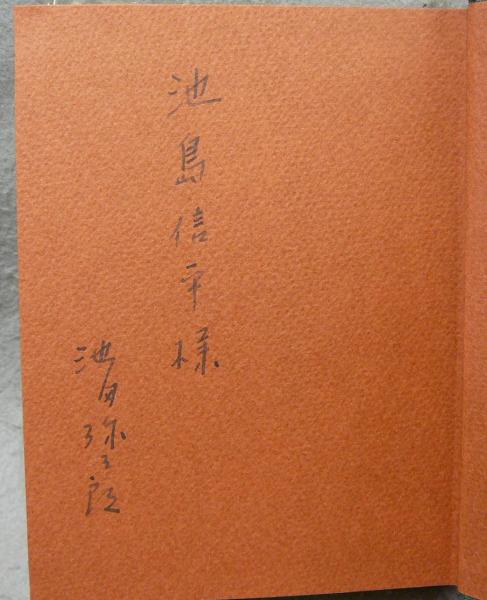 池島信平様
池田弥三郎